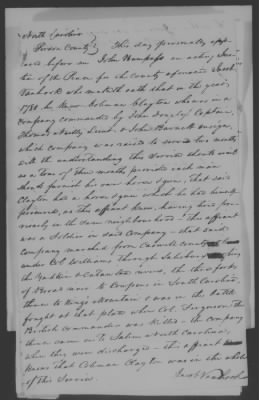 North Carolina
Person County } This day personally app
eared before me John Wamposs an acting Jus
tice of the Peace for the County aforesaid Jacob
Vanhook who maketh oath that in the year
1780 he knew Coleman Clayton who was in a
company commanded by John Douglas Captain,
Thomas Neeley Lieut. & John Barnett ensign,
which company was raised to serve two months
with the understanding this service should count
as a tour of three months provided each man
should furnish his own horse & gun, that said
Clayton had a horse & gun which he had himself
procured, as this affiant knew, having lived pre
viously in the same neighbourhood – this affiant
was a soldier in said company – that said
company marched from Caswell county
under Col Williams through Salisbury
the Yadkin & Catawba rivers, the three forks
of Broad river to Cowpens in South Carolina,
thence to Kings Mountain & was in the battle
fought at that place when Col. Ferguson the
British commander was killed – the company
thence came on to Salem North Carolina,
when they were discharged – this affiant
knows that Coleman Clayton was in the whole
of this service.
Jacob Vanhook